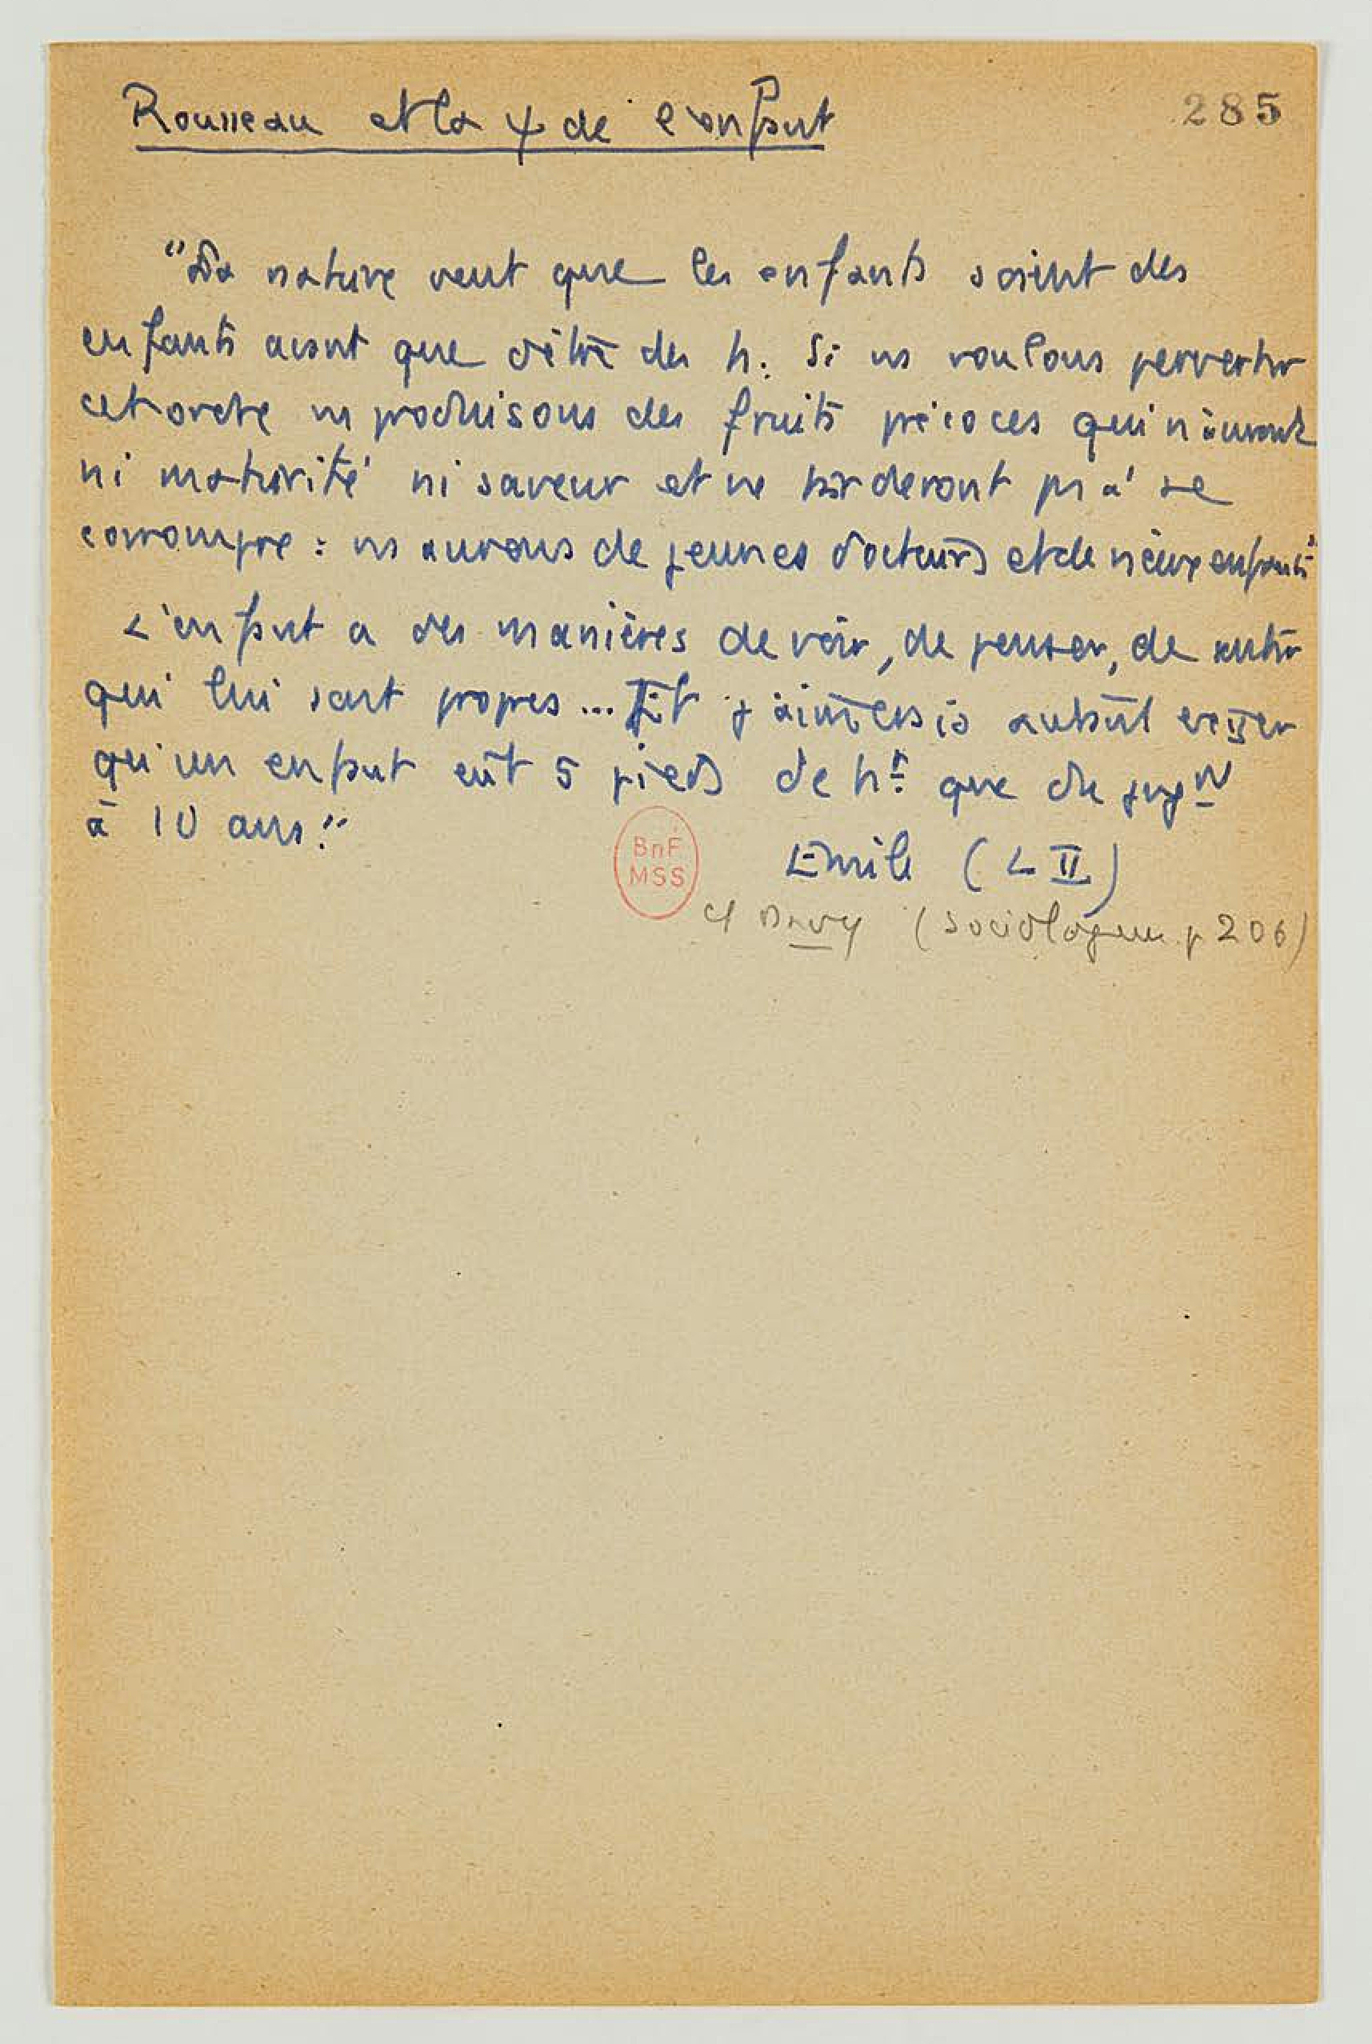 Rousseau et la ψ de l'enfant
285
"La nature veut que les enfants soient des
enfants avant que d'être des h. Si ns voulons pervertir
cet ordre ns produisons des fruits précoces qui n'auront
ni maturité ni saveur et ne tarderont pas à se
corrompre : ns aurons de jeunes docteurs et de vieux enfants"
L'enfant a des manières de voir, de penser, de sentir
qui lui sont propres... Et j'aimerais autant exiger
qu'un enfant eût 5 pieds de ht. que du jugt
à 10 ans."
BnF
MSS
Emile (L II)
cf Davy (Sociologues p 206)